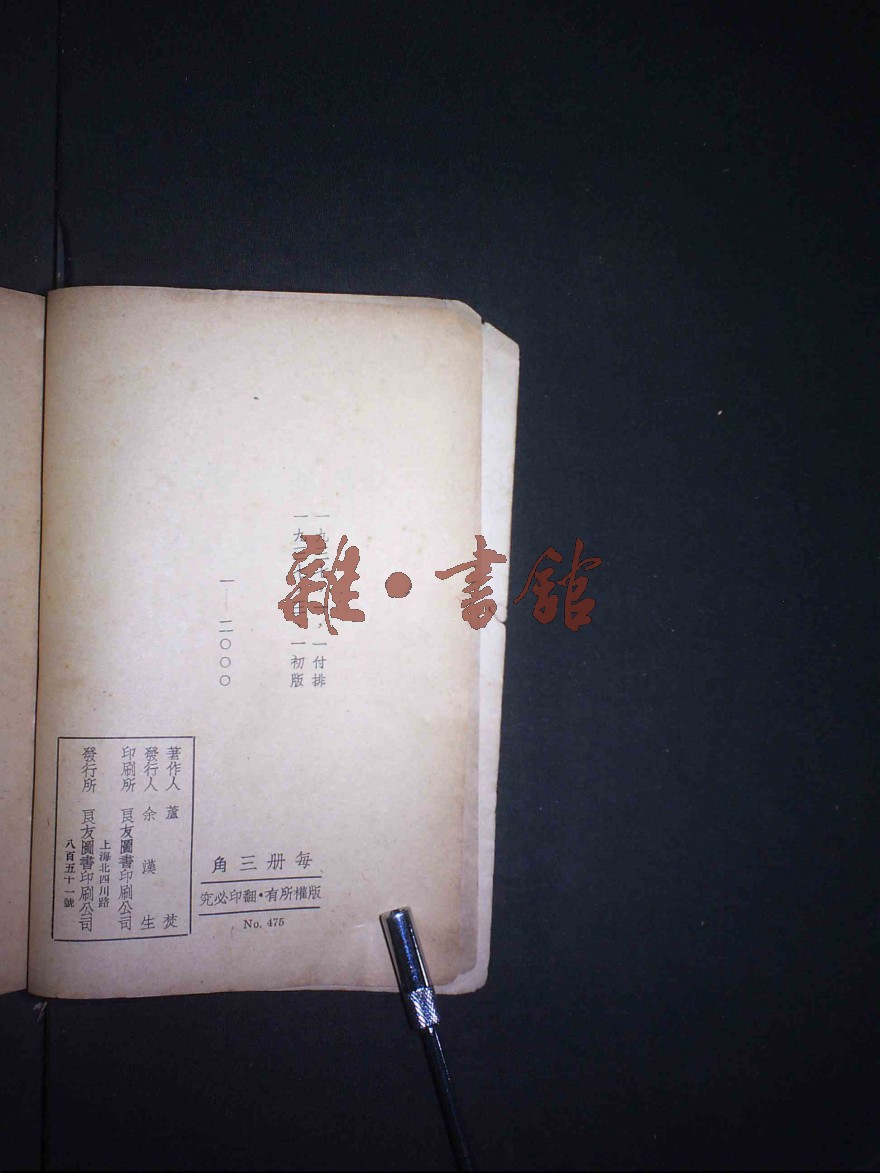 雜•書館
一九三 一付排
一九三 一初版
一—二〇〇〇
每册三角
版權所有•翻印必究
No. 475
著作人 蘆焚
發行人 余漢生
印刷所 良友圖書印刷公司
上海北四川路
發行所 良友圖書印刷公司
八百五十一號